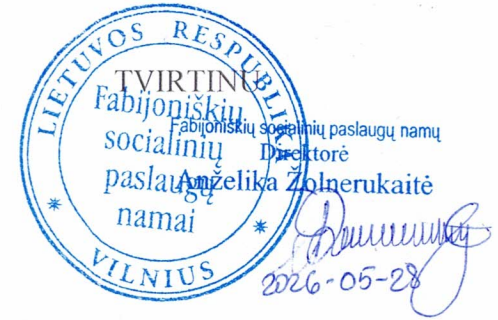 LIETUVOS RESPUBLIKA
TVIRTINU
Fabijoniškių
socialinių
paslaugų
namai
VILNIUS
Fabijoniškių socialinių paslaugų namų
Direktorė
Anželika Žolnerukaitė
2026-05-28